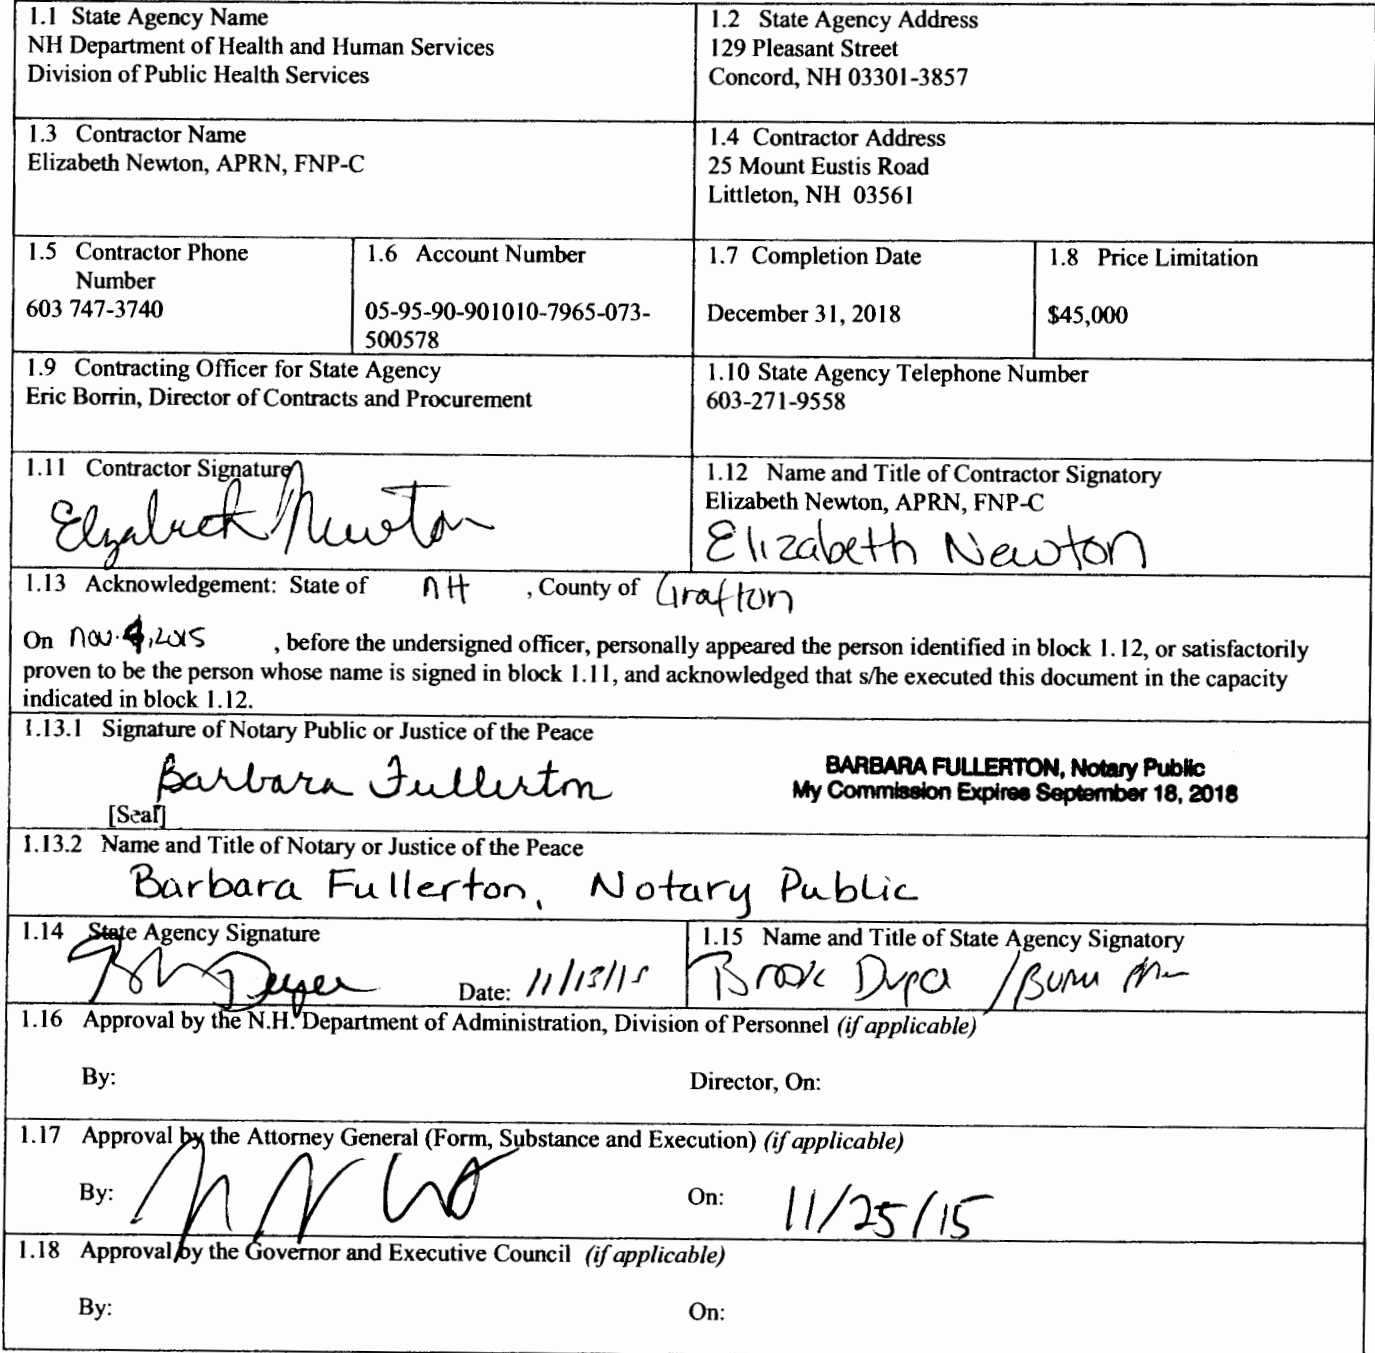 1.1 State Agency Name
NH Department of Health and Human Services
Division of Public Health Services
1.2 State Agency Address
129 Pleasant Street
Concord, NH 03301-3857
1.3 Contractor Name
Elizabeth Newton, APRN, FNP-C
1.4 Contractor Address
25 Mount Eustis Road
Littleton, NH 03561
1.5 Contractor Phone
Number
603 747-3740
1.6 Account Number
05-95-90-901010-7965-073-
500578
1.7 Completion Date
December 31, 2018
1.8 Price Limitation
$45,000
1.9 Contracting Officer for State Agency
Eric Borrin, Director of Contracts and Procurement
1.10 State Agency Telephone Number
603-271-9558
1.11 Contractor Signature
Elizabeth Newton
1.12 Name and Title of Contractor Signatory
Elizabeth Newton, APRN, FNP-C
Elizabeth Newton
1.13 Acknowledgement: State of NH , County of Grafton
On Nov. 4, 2015 , before the undersigned officer, personally appeared the person identified in block 1.12, or satisfactorily
proven to be the person whose name is signed in block 1.11, and acknowledged that s/he executed this document in the capacity
indicated in block 1.12.
1.13.1 Signature of Notary Public or Justice of the Peace
Barbara Fullerton
BARBARA FULLERTON, Notary Public
My Commission Expires September 18, 2018
[Seal]
1.13.2 Name and Title of Notary or Justice of the Peace
Barbara Fullerton, Notary Public
1.14 State Agency Signature
Date: 11/13/15
1.15 Name and Title of State Agency Signatory
1.16 Approval by the N.H. Department of Administration, Division of Personnel (if applicable)
By: Director, On:
1.17 Approval by the Attorney General (Form, Substance and Execution) (if applicable)
By: On: 11/25/15
1.18 Approval by the Governor and Executive Council (if applicable)
By: On: